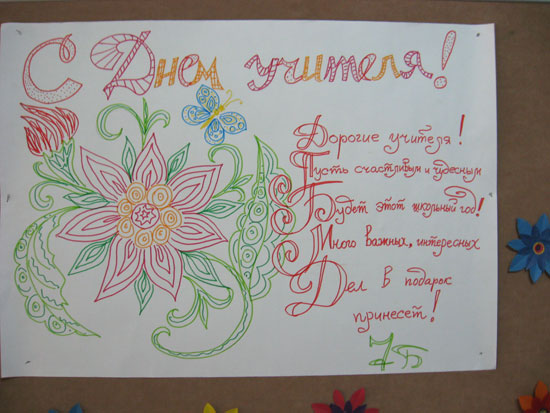 С Днем учителя!
Дорогие учителя!
Пусть счастливым и чудесным
Будет этот школьный год!
Много важных, интересных
Дел в подарок
принесет!
7Б